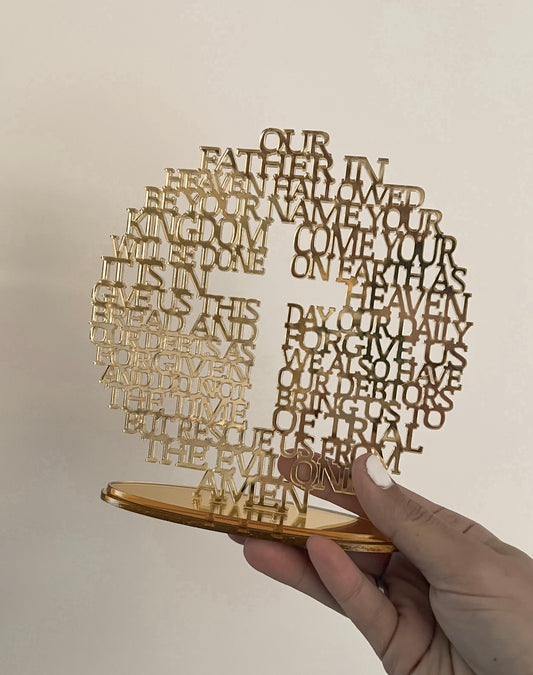 OUR
FATHER IN
HEAVEN HALLOWED
BE YOUR NAME YOUR
KINGDOM COME YOUR
WILL BE DONE ON EARTH AS
IT IS IN HEAVEN
GIVE US THIS DAY OUR DAILY
BREAD AND FORGIVE US
OUR DEBTS AS WE ALSO HAVE
FORGIVEN OUR DEBTORS
AND DO NOT BRING US TO
THE TIME OF TRIAL
BUT RESCUE US FROM
THE EVIL ONE
AMEN